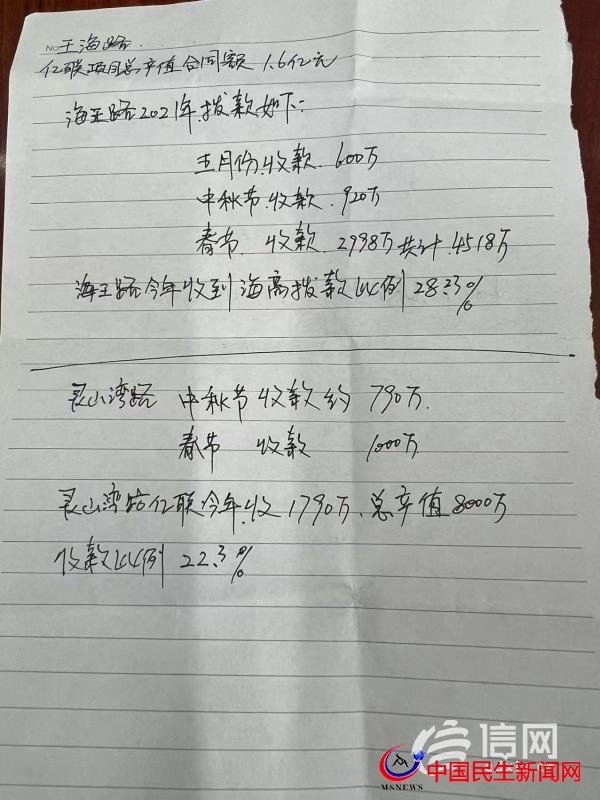 No 王海路
亿联项目总产值合同额 1.6亿元
海王路2021年拨款如下:
五月份.收款.600万
中秋节.收款.920万
春节.收款.2998万共计.4518万
海王路今年收到海高拨款比例28.23%
灵山湾路 中秋节收款约 790万.
春节 收款 1000万.
灵山湾路亿联今年.收1790万.总产值8000万
收款比例 22.3%
信网
中国民生新闻网
MSNEWS